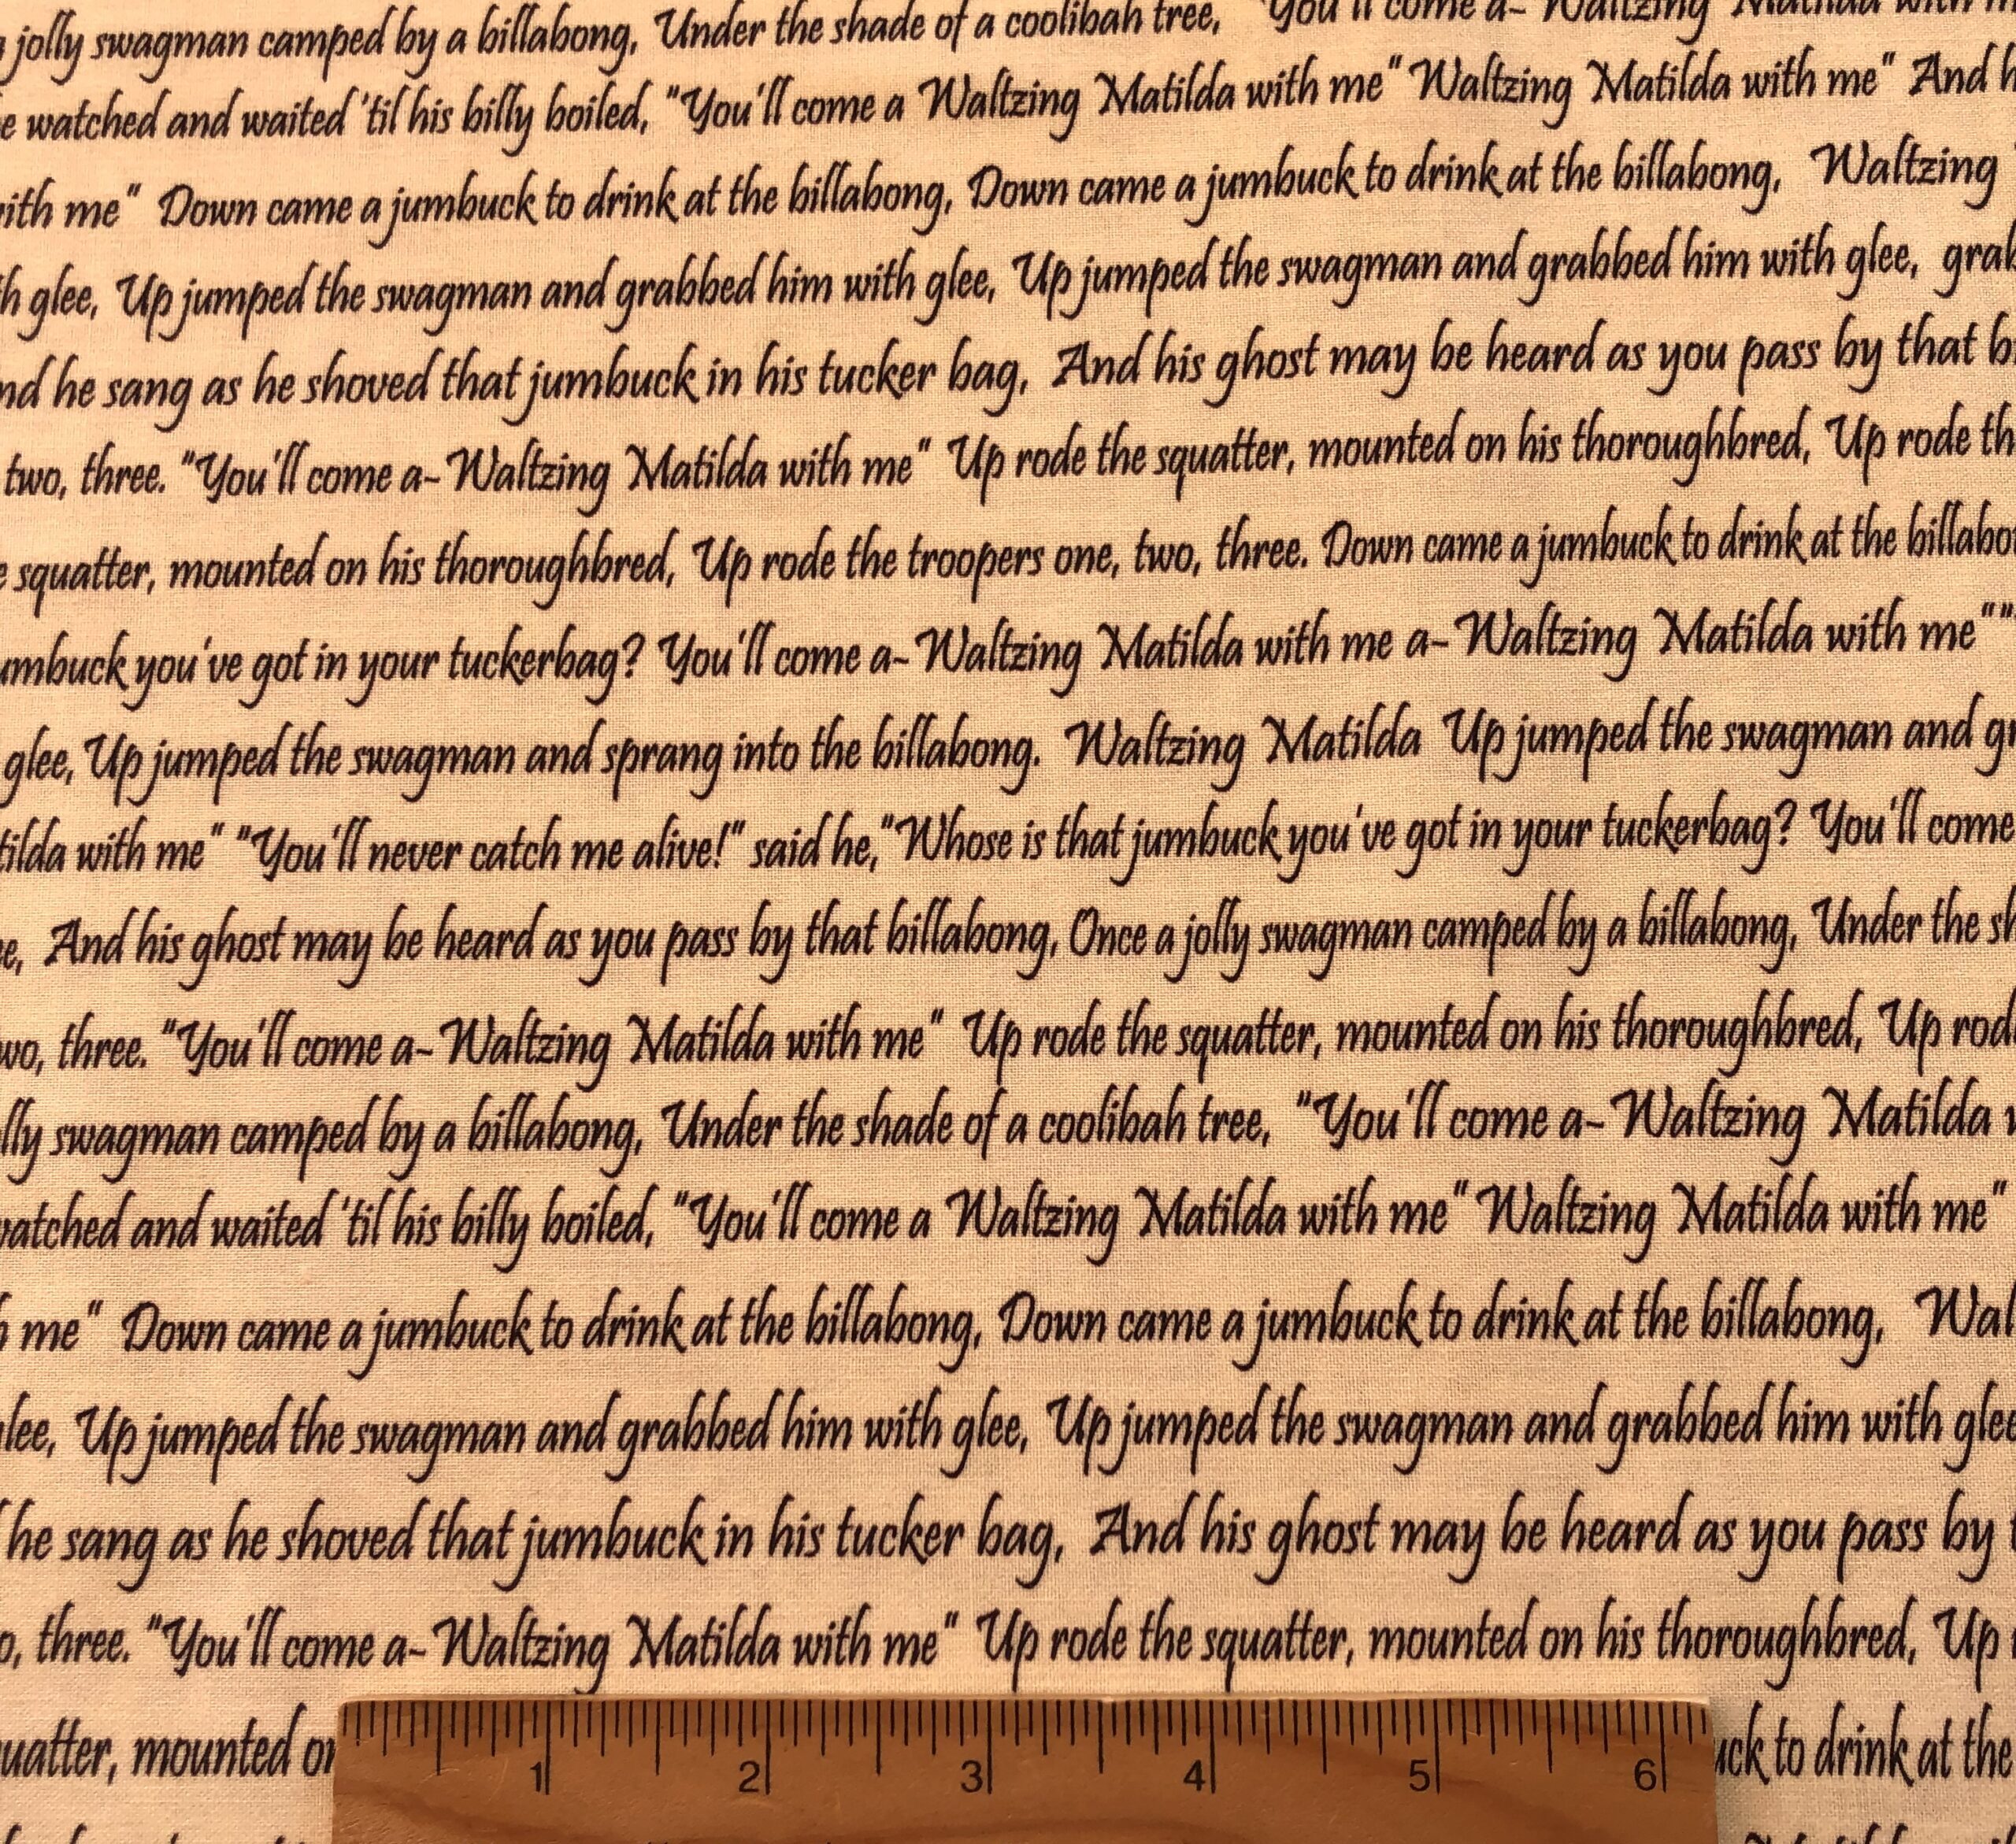 jolly swagman camped by a billabong, Under the shade of a coolibah tree, "You'll come a- Waltzing Matilda with
watched and waited 'til his billy boiled, "You'll come a Waltzing Matilda with me" Waltzing Matilda with me" And
me" Down came a jumbuck to drink at the billabong, Down came a jumbuck to drink at the billabong, Waltzing
glee, Up jumped the swagman and grabbed him with glee, Up jumped the swagman and grabbed him with glee,
he sang as he shoved that jumbuck in his tucker bag, And his ghost may be heard as you pass by that
two, three. "You'll come a-Waltzing Matilda with me" Up rode the squatter, mounted on his thoroughbred, Up rode
squatter, mounted on his thoroughbred, Up rode the troopers one, two, three. Down came a jumbuck to drink at the
you've got in your tuckerbag? You'll come a-Waltzing Matilda with me a-Waltzing Matilda with me""
glee, Up jumped the swagman and sprang into the billabong. Waltzing Matilda Up jumped the swagman and
with me" "You'll never catch me alive!" said he, "Whose is that jumbuck you've got in your tuckerbag? You'll come
And his ghost may be heard as you pass by that billabong, Once a jolly swagman camped by a billabong, Under the
three. "You'll come a-Waltzing Matilda with me" Up rode the squatter, mounted on his thoroughbred, Up
swagman camped by a billabong, Under the shade of a coolibah tree, "You'll come a-Waltzing Matilda
and waited 'til his billy boiled, "You'll come a Waltzing Matilda with me" Waltzing Matilda with me"
me" Down came a jumbuck to drink at the billabong, Down came a jumbuck to drink at the billabong,
Up jumped the swagman and grabbed him with glee, Up jumped the swagman and grabbed him with
he sang as he shoved that jumbuck in his tucker bag, And his ghost may be heard as you pass by
three. "You'll come a-Waltzing Matilda with me" Up rode the squatter, mounted on his thoroughbred, Up
mounted to drink at the
1 2 3 4 5 6